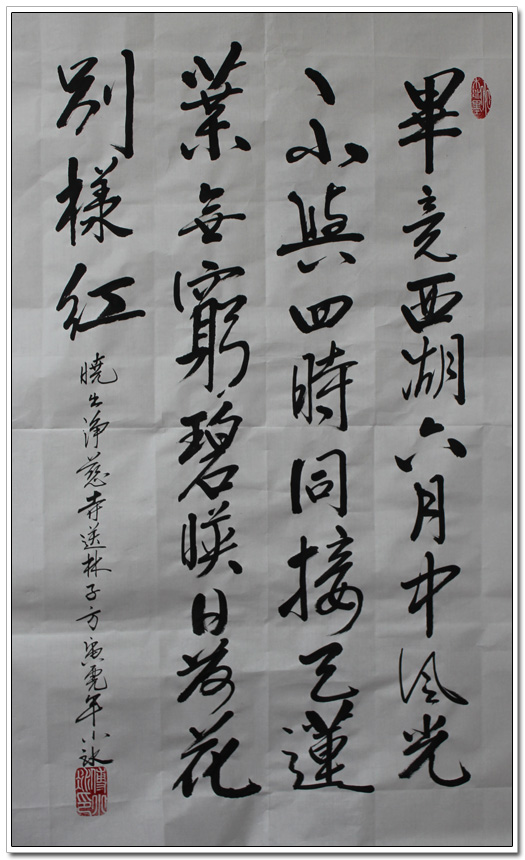 畢竟西湖六月中風光
不與四時同接天蓮
葉無窮碧暎日荷花
別樣紅
曉出淨慈寺送林子方 寅虎年小